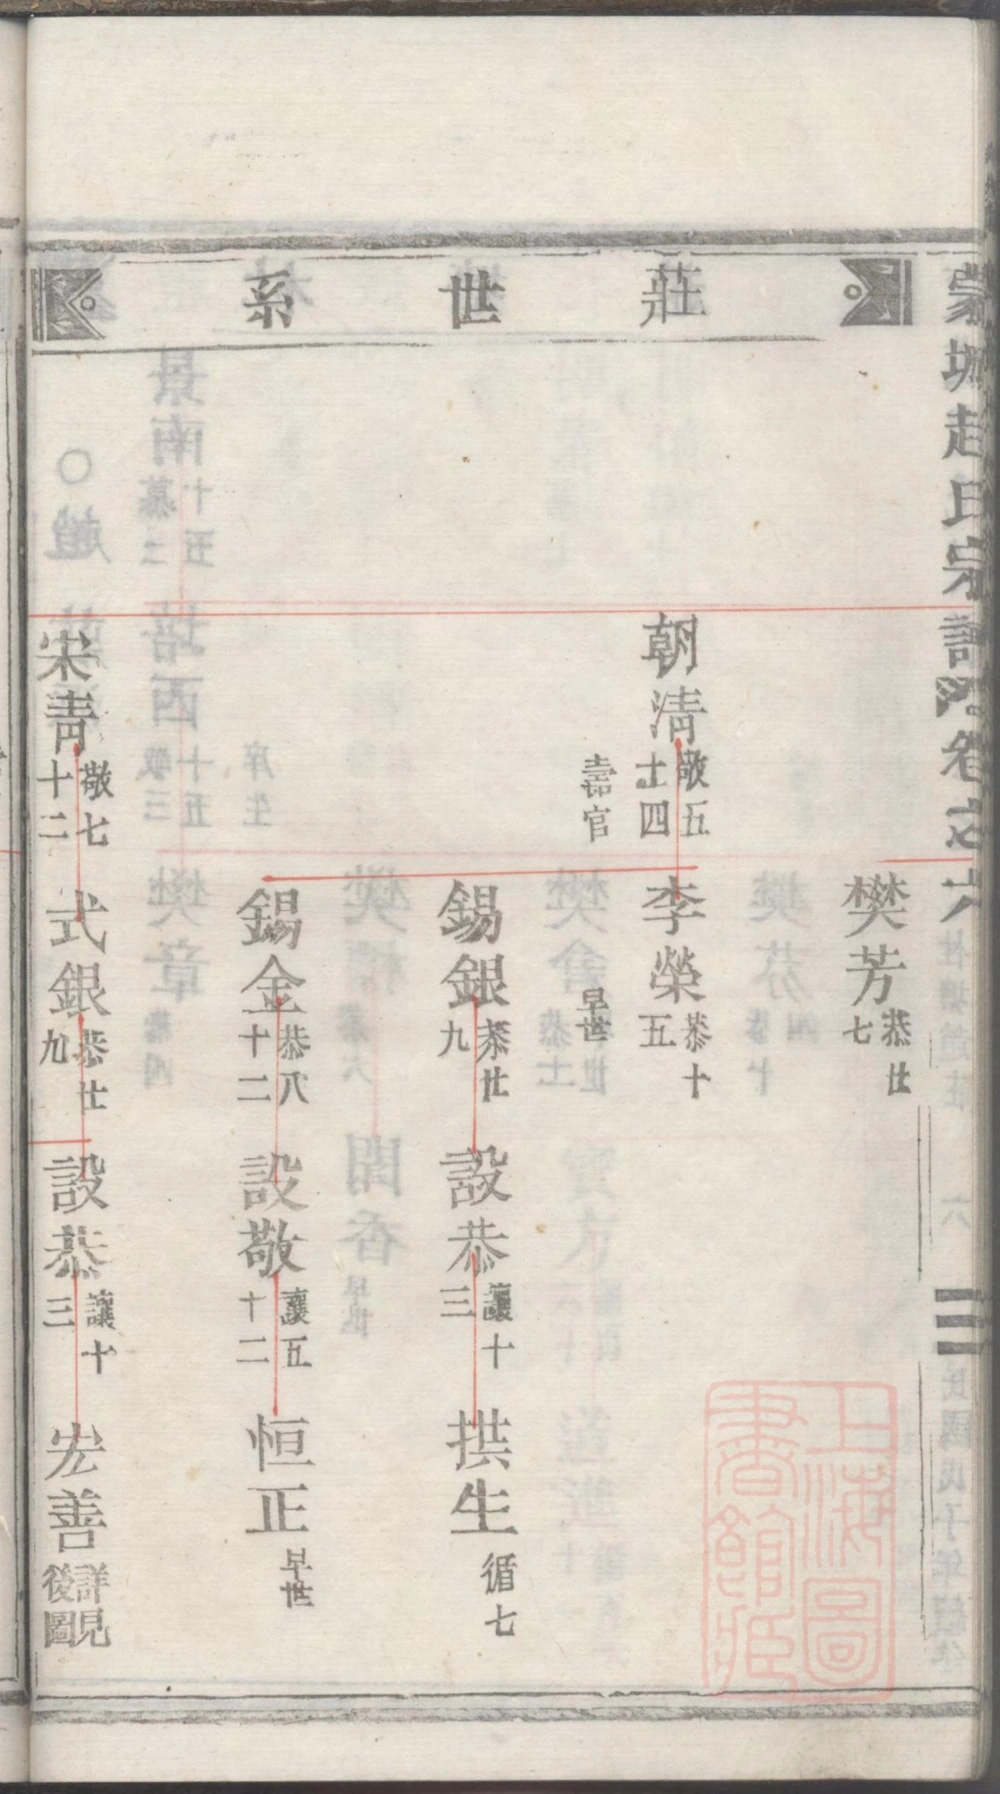 蒙城趙氏宗譜
卷之六
莊世系
樊芳
恭廿七
朝清
敬五十四
嘉官
李榮
恭十五
早世
錫銀
恭廿九
設恭
讓十三
拱生
循七
錫金
恭八十二
設敬
讓五十二
恒正
早世
宋青
敬七十二
式銀
恭廿九
設恭
讓十三
宏善
詳見後圖
上海圖書館藏